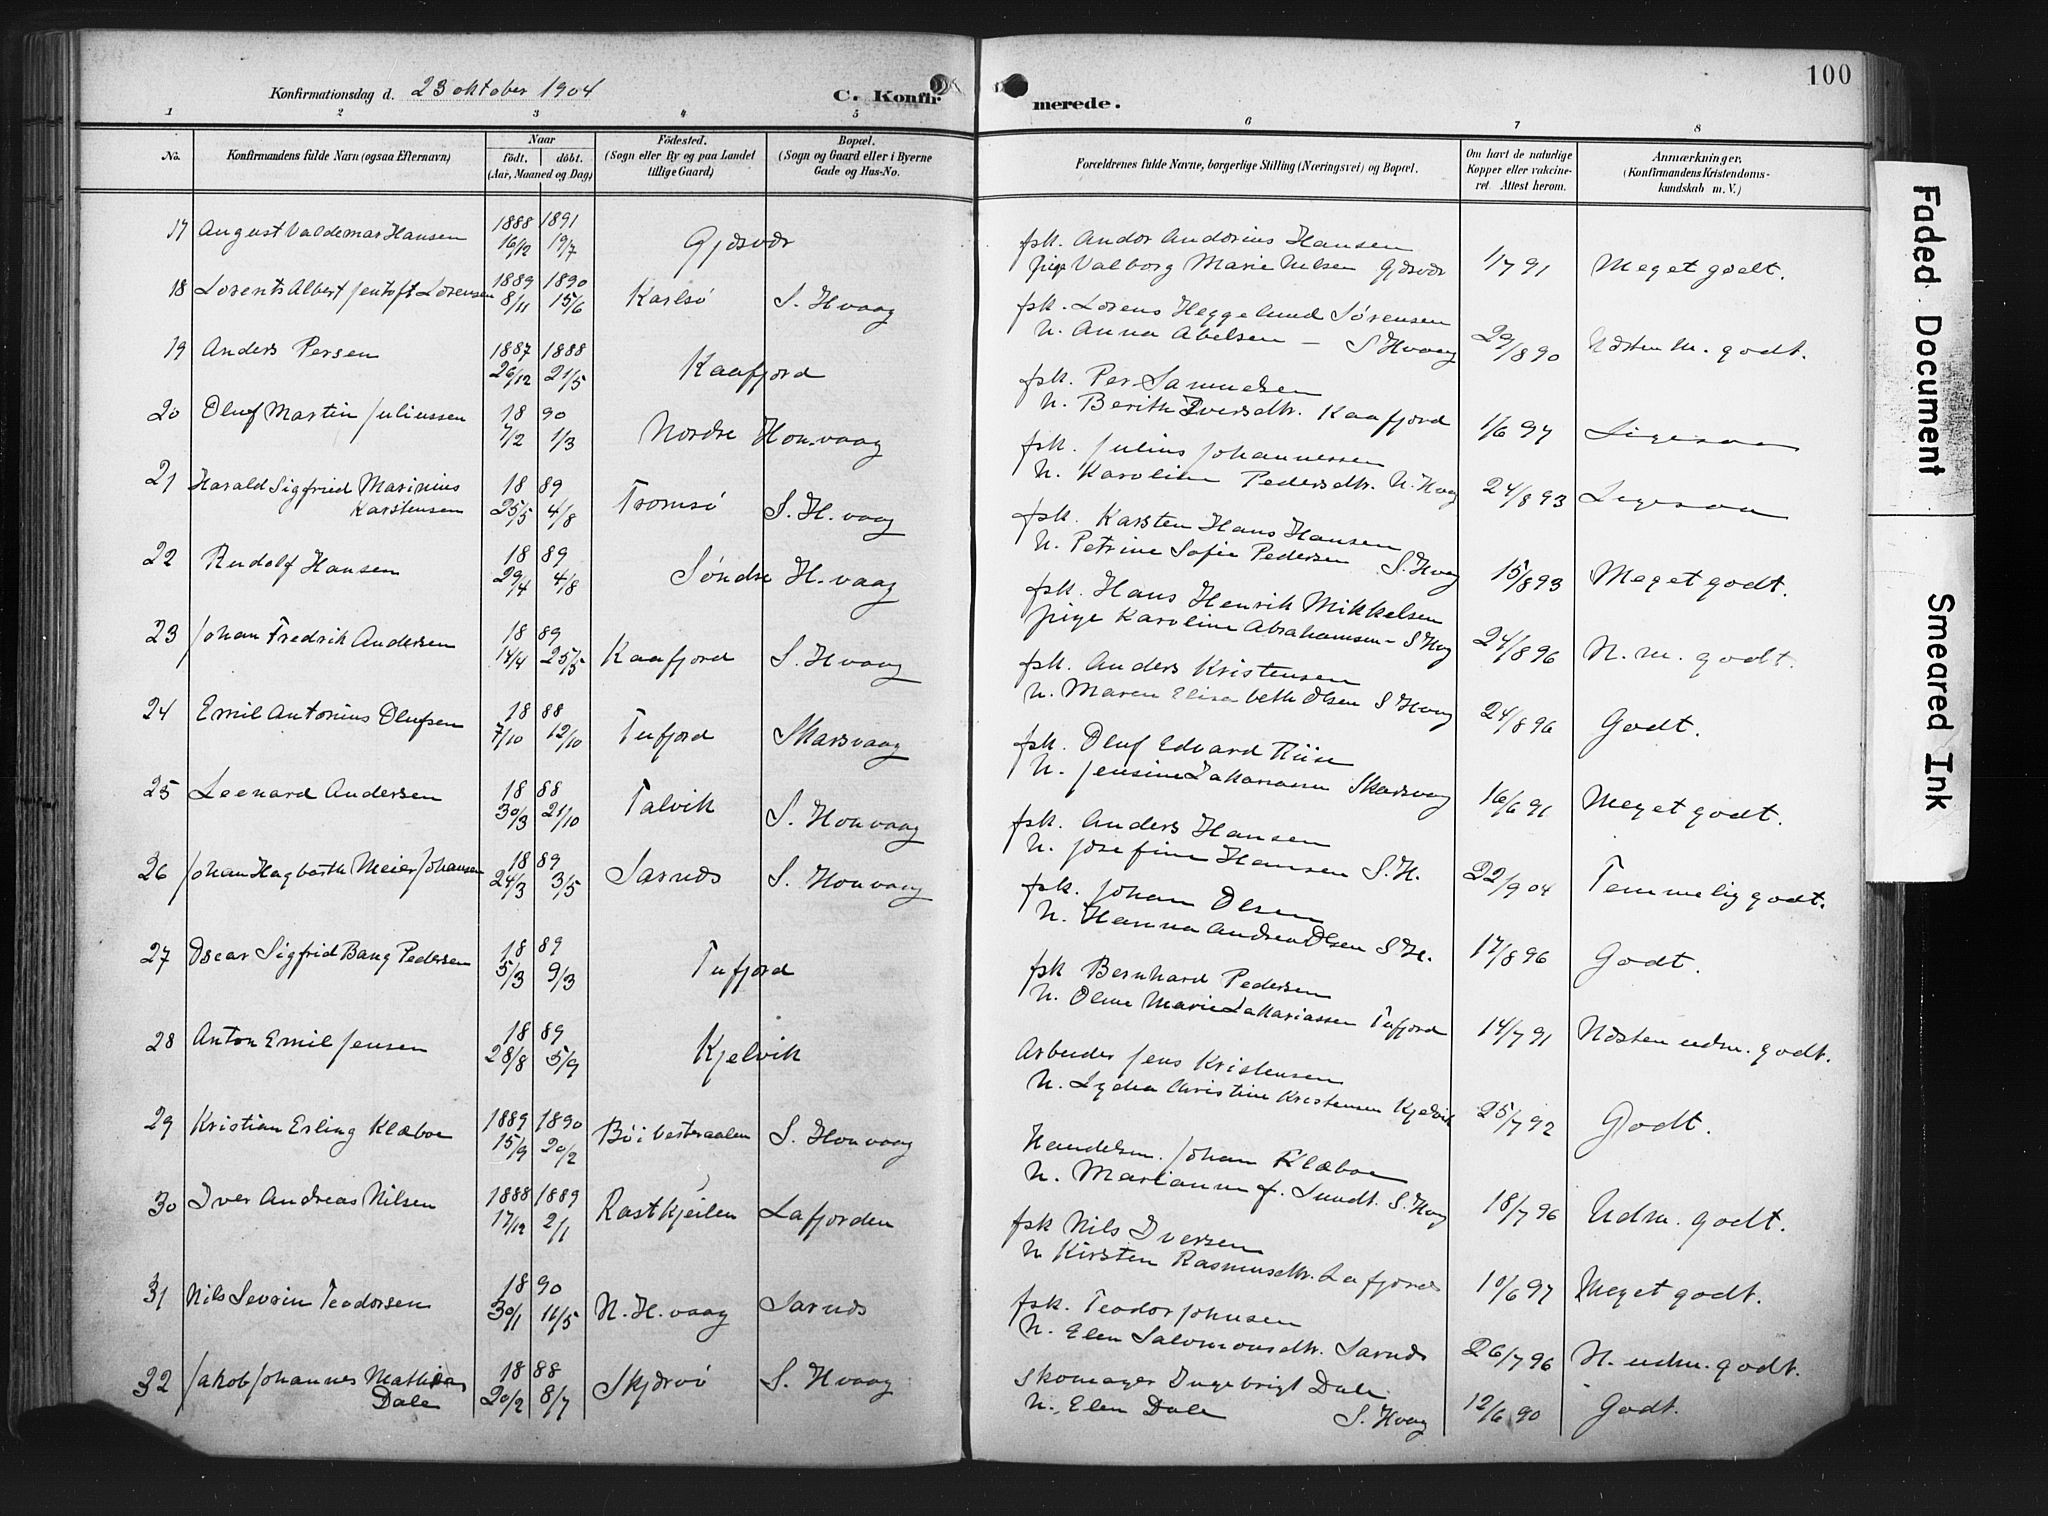 100
Konfirmationsdag d. 23 oktober 1904
C. Konfir merede.
1 2 3 4 5 6 7 8
No.
Konfirmandens fulde Navn (ogsaa Efternavn)
Naar
født. døbt.
(Aar, Maaned og Dag)
Fødested.
(Sogn eller By og paa Landet
tillige Gaard)
Bopæl.
(Sogn og Gaard eller i Byerne
Gade og Hus-No.
Forældrenes fulde Navne, borgerlige Stilling (Næringsvei) og Bopæl.
Om havt de naturlige
Kopper eller vakcine-
ret. Attest herom.
Anmærkninger.
(Konfirmandens Kristendoms-
kundskab m. V.)
17 August Valdemar Hansen 1888 16/12 1891 19/7 Gjæsvær
fsk. Andor Andorius Hansen
pige Valborg Marie Nilsen Gjæsvær 1/7 91 Meget godt.
18 Lorents Albert Jentoft Lorensen 1889 8/11 1890 15/6 Karlsø S. Hvaag
fsk. Lorens Heggelund Sørensen
h. Anna Abelsen – S Hvaag 29/8 90 Næsten m. godt.
19 Anders Persen 1887 26/12 1888 21/5 Kaafjord
fsk. Per Samuelsen
h. Berith Iversdtr. Kaafjord 1/6 97 Ligesaa
20 Oluf Martin Juliussen 18 90 7/2 1/3 Nordre Honvaag
fsk. Julius Johannessen
h. Karoline Pedersdtr. N. Hvag 24/8 93 Ligesaa
21 Harald Sigfried Marinius
Karstensen 18 89 25/5 4/8 Tromsø S. H. vaag
fsk. Karsten Hans Hansen
h. Petrine Sofie Pedersen S. Hvag 15/8 93 Meget godt.
22 Rudolf Hansen 18 89 29/4 4/8 Søndre H. vaag
fsk. Hans Henrik Mikkelsen
pige Karoline Abrahamsen – S Hvg 24/8 96 N. m. godt.
23 Johan Fredrik Andersen 18 89 14/4 25/5 Kaafjord S. Hvaag
fsk. Anders Kristensen
h. Maren Elisabeth Olsen S Hvaag 24/8 96 Godt.
24 Emil Antonius Olufsen 18 88 7/10 12/10 Tufjord Skarsvaag
fsk. Oluf Edvard Riise
h. Jensine Zakariassen Skarsvaag 16/6 91 Meget godt.
25 Leonard Andersen 18 88 30/3 21/10 Talvik S. Honvaag
fsk. Anders Hansen
h. Josefine Hansen S. H. 22/9 04 Temmelig godt.
26 Johan Hagbarth Meier Johansen 18 89 24/3 3/5 Sarnæs S. Honvaag
fsk. Johan Olsen
h. Hanna Andrea Olsen S H. 17/8 96 Godt.
27 Oscar Sigfrid Bang Pedersen 18 89 5/3 9/3 Tufjord
fsk Bernhard Pedersen
h. Oline Marie Zakariassen Tufjord 14/7 91 Næsten udm. godt.
28 Anton Emil Jensen 18 89 28/8 5/9 Kjelvik
Arbeider Jens Kristensen
h. Lydia Christine Kristensen Kjelvik 25/7 92 Godt.
29 Kristian Erling Klæboe 1889 15/9 1890 20/2 Bø i Vesteraalen S. Honvaag
Handelsm. Johan Klæboe
h. Marianne f. Lundt. S. Hvag 18/7 96 Udm. godt.
30 Iver Andreas Nilsen 1888 17/12 1889 2/1 Rastkjeilen Lafjorden
fsk Nils Iversen
h Kirsten Rasmusdtr. Lafjord 10/6 97 Meget godt.
31 Nils Sevrin Teodorsen 18 90 30/1 11/5 N. H. vaag Sarnæs
fsk. Teodor Johnsen
h. Elen Salomonsdtr. Sarnæs 26/7 96 N. udm. godt.
32 Jakob Johannes Mathias
Dale 18 88 20/2 8/7 Skjærvø S. Hvaag
Skomager Ingebrigt Dale
h. Elen Dale S. Hvaag 12/6 90 Godt.
Faded Document
Smeared Ink